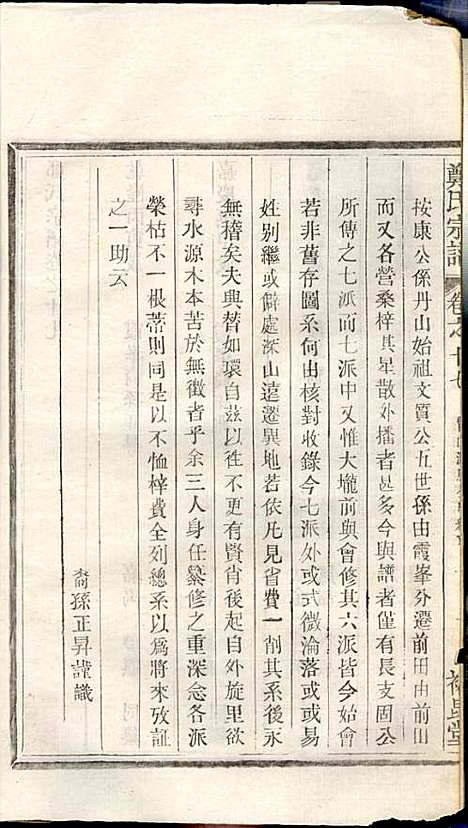 鄭氏宗譜 卷之十七
按康公係丹山始祖文質公五世孫由霞峯分遷前田由前田
而又各營桑梓其星散外播者甚多今與譜者僅有長支固公
所傳之七派而七派中又惟大壠前與會修其六派皆今始會
若非舊存圖系何由核對收錄今七派外或式微淪落或或易
姓別繼或僻處深山遠遷異地若依凡見省費一削其系後永
無稽矣夫興替如環自茲以徃不更有賢肖後起自外旋里欲
尋水源木本苦於無徵者乎余三人身任纂修之重深念各派
榮枯不一根蒂則同是以不恤梓費全列總系以爲將來攷証
之一助云
裔孫正昇謹識